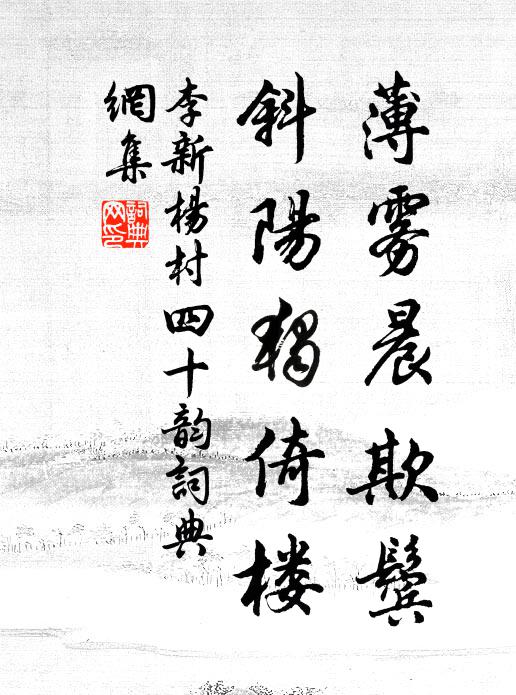 薄雾晨欺鬓
斜陽独倚楼
李新楊村四十韵詞典
網集
詞典
网印